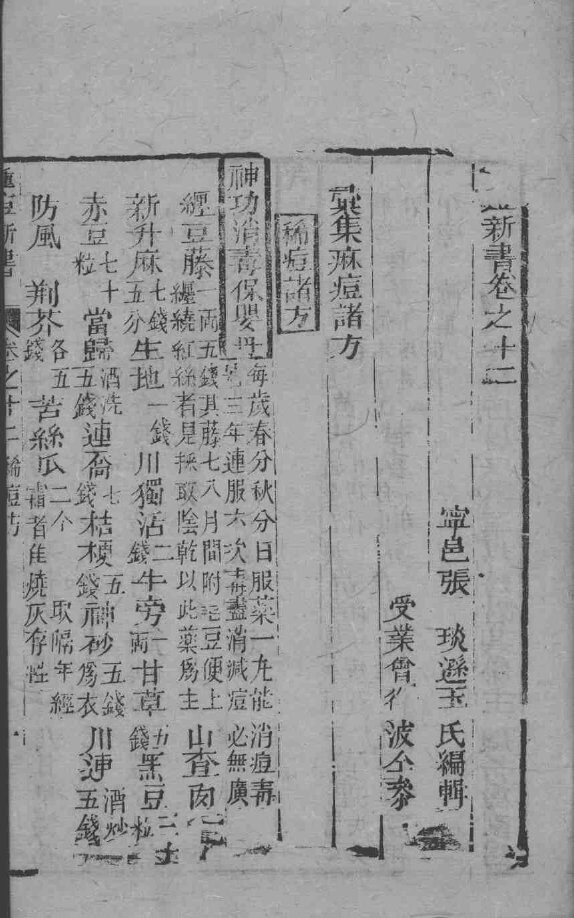 新書卷之十二
寧邑張 琰遜玉氏編輯
受業曾 波仝參
彙集痲痘諸方
稀痘諸方
神功消毒保嬰丹 每歲春分秋分日服藥一丸能消痘毒
三年連服六次毒盡消減痘必無廣
纏豆藤 一兩五錢其藤七八月間附毛豆便上
纏繞紅絲者是採取陰乾以此藥爲主
山查肉
新升麻 七錢五分 生地 一錢 川獨活 二錢 牛旁 一兩 甘草 五錢 黑豆 三十粒
赤豆 七十粒 當歸 酒洗五錢 連喬 七錢 桔梗 五錢 神砂 五錢爲衣 川連 酒炒五錢
防風 荆芥 各五錢 苦絲瓜 二个 取隔年經
霜者佳燒灰存性
種痘新書 卷之十二 稀痘方